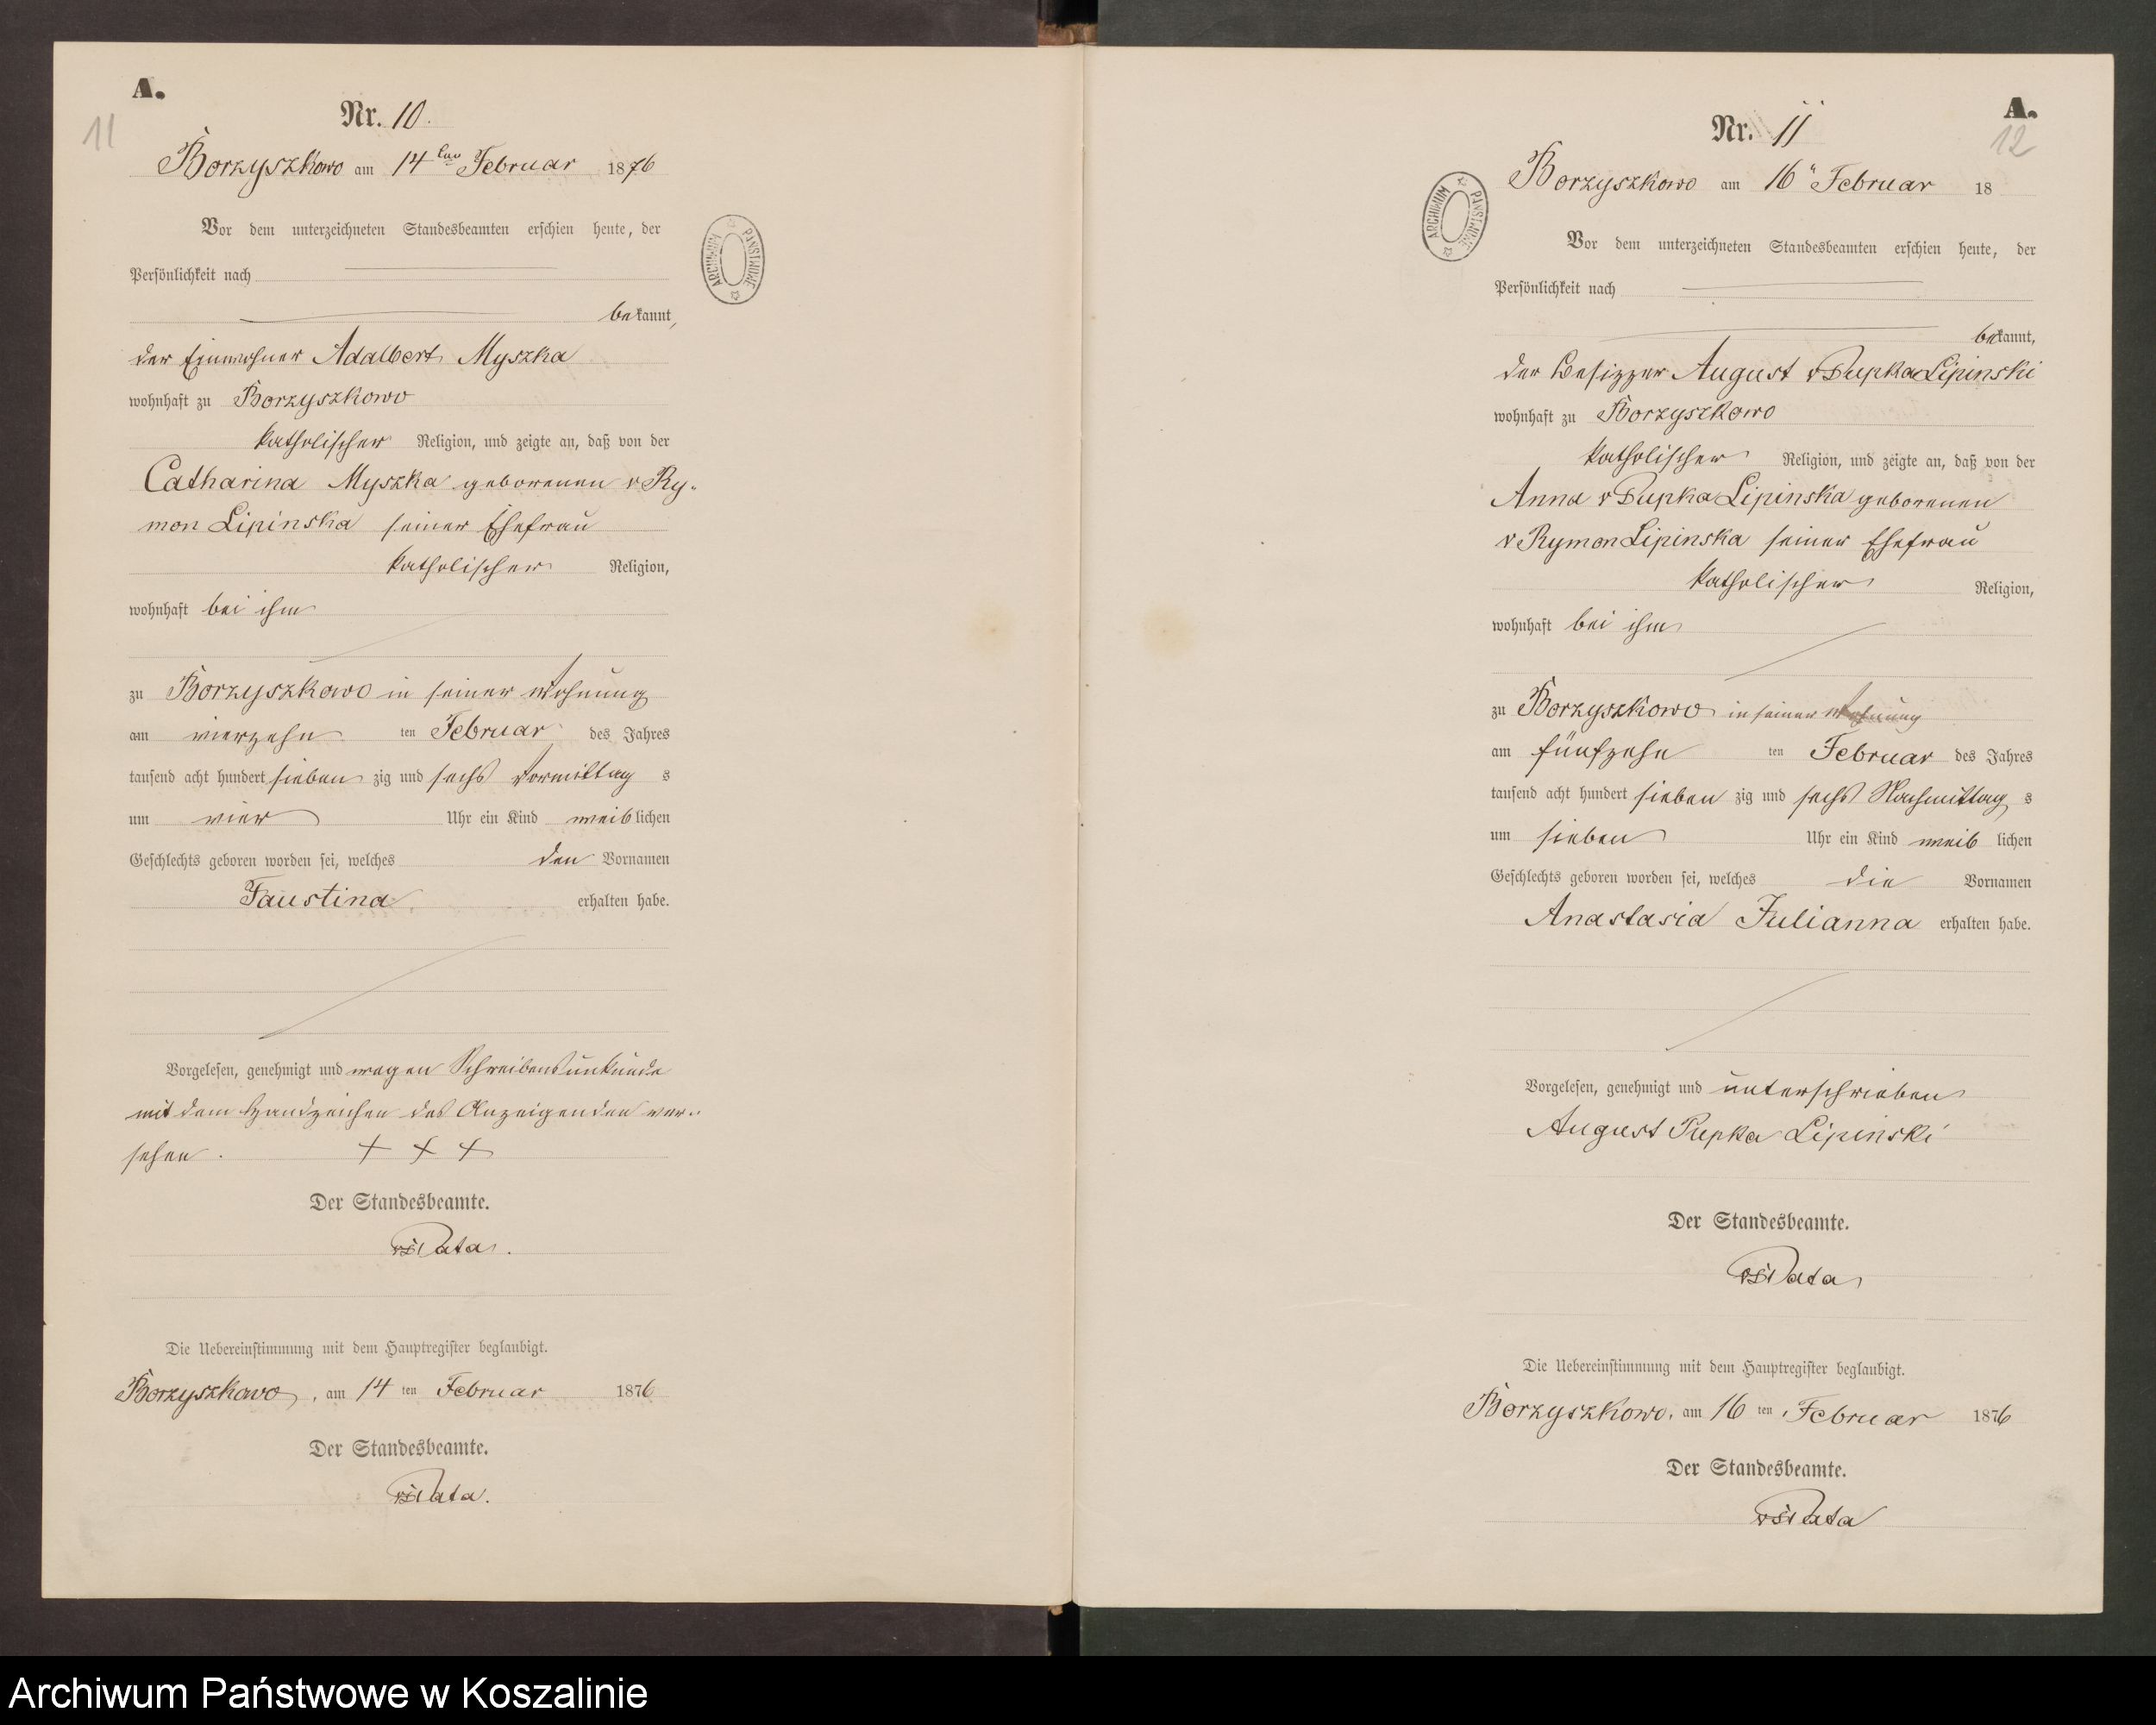 A.
11
Nr. 10.
Borzyszkowo am 14ten Februar 1876
Vor dem unterzeichneten Standesbeamten erschien heute, der
Persönlichkeit nach
bekannt,
der Einwohner Adalbert Myszka
wohnhaft zu Borzyszkowo
katholischer Religion, und zeigte an, daß von der
Catharina Myszka geborenen v Ry-
mon Lipinska seiner Ehefrau
katholischer Religion,
wohnhaft bei ihm
zu Borzyszkowo in seiner Wohnung
am vierzehn ten Februar des Jahres
tausend acht hundert sieben zig und sechs Vormittag s
um vier Uhr ein Kind weiblichen
Geschlechts geboren worden sei, welches den Vornamen
Faustina erhalten habe.
Vorgelesen, genehmigt und wegen Schreibensunkunde
mit dem Handzeichen des Anzeigenden ver-
sehen. + + +
Der Standesbeamte.
Die Uebereinstimmung mit dem Hauptregister beglaubigt.
Borzyszkowo, am 14 ten Februar 1876
Der Standesbeamte.
ARCHIWUM PAŃSTWOWE
A.
12
Nr. 11
Borzyszkowo am 16" Februar 18
Vor dem unterzeichneten Standesbeamten erschien heute, der
Persönlichkeit nach
bekannt,
der Besitzer August v Pupka Lipinski
wohnhaft zu Borzyszkowo
katholischer Religion, und zeigte an, daß von der
Anna v Pupka Lipinska geborenen
v Rymon Lipinska seiner Ehefrau
katholischer Religion,
wohnhaft bei ihm
zu Borzyszkowo in seiner Wohnung
am fünfzehn ten Februar des Jahres
tausend acht hundert sieben zig und sechs Nachmittag s
um sieben Uhr ein Kind weib lichen
Geschlechts geboren worden sei, welches die Vornamen
Anastasia Julianna erhalten habe.
Vorgelesen, genehmigt und unterschrieben
August Pupka Lipinski
Der Standesbeamte.
Die Uebereinstimmung mit dem Hauptregister beglaubigt.
Borzyszkowo, am 16 ten Februar 1876
Der Standesbeamte.
ARCHIWUM PAŃSTWOWE
Archiwum Państwowe w Koszalinie